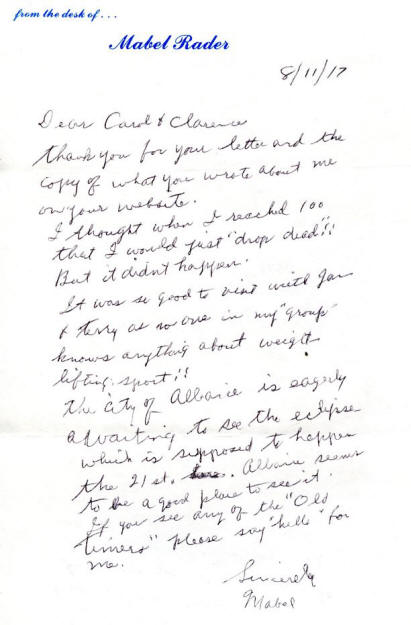 from the desk of . . .
Mabel Rader
8/11/17
Dear Carol & Clarence
thank you for your letter and the
copy of what you wrote about me
on your website.
I thought when I reached 100
that I would just "drop dead"!!
But it didn't happen.
It was so good to visit with Jan
& Terry as no one in my "group"
knows anything about weight
lifting sport!!
the city of Albanie is eagerly
awaiting to see the eclipse
which is supposed to happen
the 21st. Albanie seems
to be a good place to see it.
If you see any of the "Old
timers" please say "hello" for
me.
Sincerely
Mabel